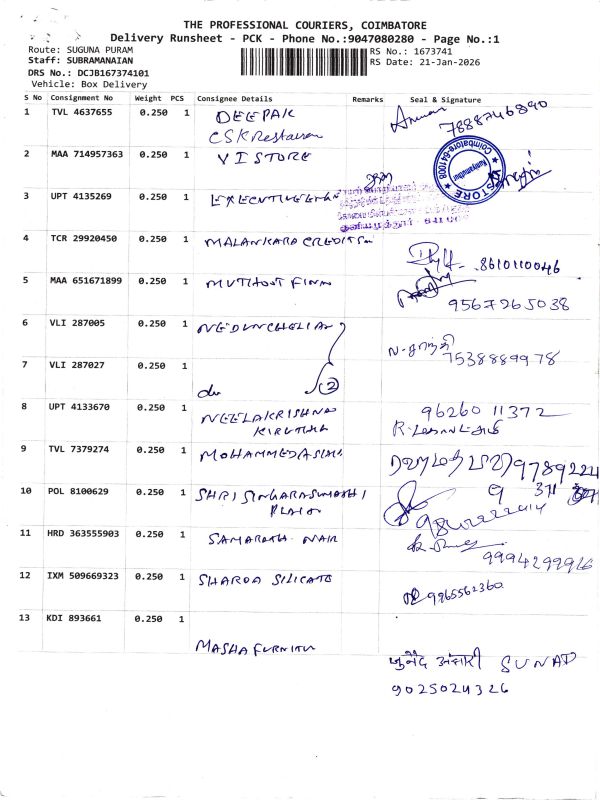 THE PROFESSIONAL COURIERS, COIMBATORE
Delivery Runsheet - PCK - Phone No.:9047080280 - Page No.:1
Route: SUGUNA PURAM
RS No.: 1673741
Staff: SUBRAMANAIAN
RS Date: 21-Jan-2026
DRS No.: DCJB167374101
Vehicle: Box Delivery
S No Consignment No Weight PCS Consignee Details Remarks Seal & Signature
1 TVL 4637655 0.250 1 DEEPAK 7888746890
CSK Restauran
2 MAA 714957363 0.250 1 VI STORE
Coimbatore-641008
STORE
3 UPT 4135269 0.250 1
4 TCR 29920450 0.250 1 MALANKARA CREDITS
8610110046
5 MAA 651671899 0.250 1 MUTHOOT FINA
9567265038
6 VLI 287005 0.250 1 NEDUNCHELIAN
ந-சாந்தி
7538889978
7 VLI 287027 0.250 1 do (2)
8 UPT 4133670 0.250 1 NEELAKRISHNA 96260 11372
KIRUTHI
9 TVL 7379274 0.250 1 MOHAMMED ASIM 9789224
9 371
10 POL 8100629 0.250 1 SHRI SINGARA
11 HRD 363555903 0.250 1 SAMARATH NAIR
9994299926
12 IXM 509669323 0.250 1 SHARDA SILICATE
9965562360
13 KDI 893661 0.250 1 MASHA FURNITU
जुनैद अंसारी
9025024326